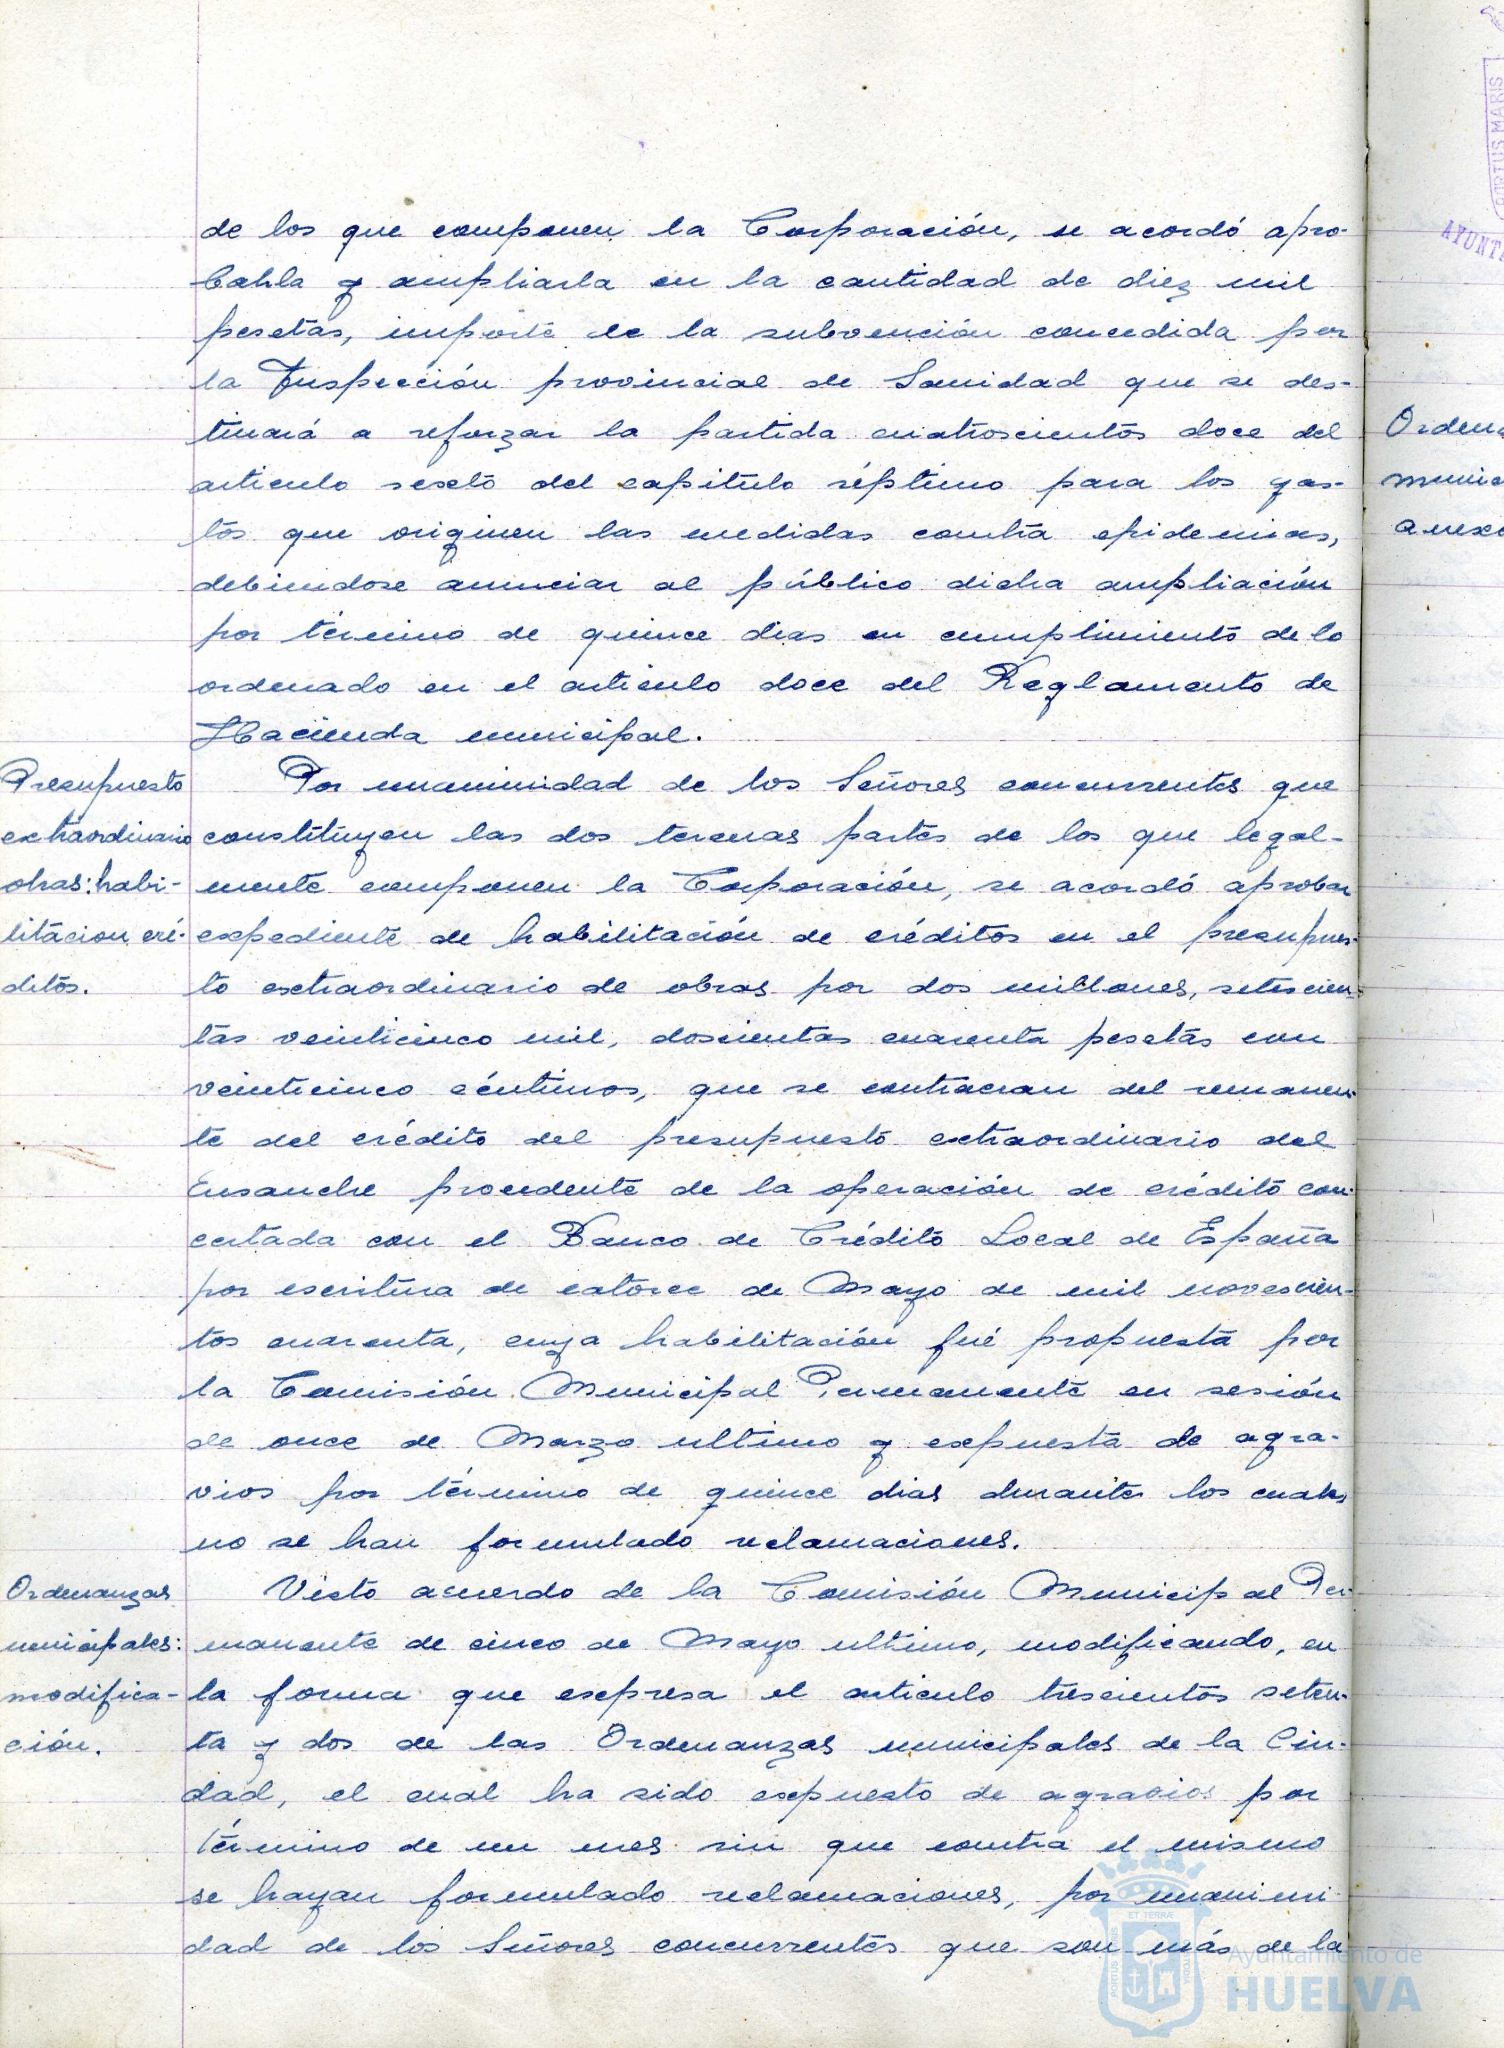 de los que componen la Corporación, se acordó apro-
barla y ampliarla en la cantidad de diez mil
pesetas, importe de la subvención concedida por
la Inspección provincial de Sanidad que se des-
tinará a reforzar la partida cuatroscientos doce del
articulo sexto del capitulo séptimo para los gas-
tos que originen las medidas contra epidemias,
debiendose anunciar al público dicha ampliación
por término de quince dias en cumplimiento de lo
ordenado en el articulo doce del Reglamento de
Hacienda municipal.
Presupuesto
extraordinario
obras: habi-
litacion cré-
ditos.
Por unanimidad de los Señores concurrentes que
constituyen las dos terceras partes de los que legal-
mente componen la Corporación, se acordó aprobar
expediente de habilitación de créditos en el presupues-
to extraordinario de obras por dos millones, setescien-
tas veinticinco mil, doscientas cuarenta pesetas con
veinticinco céntimos, que se contraeran del remanen-
te del crédito del presupuesto extraordinario del
Ensanche procedente de la operación de crédito con-
certada con el Banco de Crédito Local de España
por escritura de catorce de Mayo de mil novescien-
tos cuarenta, cuya habilitación fué propuesta por
la Comisión Municipal Permanente en sesión
de once de Marzo ultimo y expuesta de agra-
vios por término de quince dias durantes los cuales
no se han formulado reclamaciones.
Ordenanzas
municipales:
modifica-
ción.
Visto acuerdo de la Comisión Municipal Per-
manente de cinco de Mayo ultimo, modificando, en
la forma que expresa el articulo trescientos seten-
ta y dos de las Ordenanzas municipales de la Ciu-
dad, el cual ha sido expuesto de agravios por
término de un mes sin que contra el mismo
se hayan formulado reclamaciones, por unanimi-
dad de los Señores concurrentes que son más de la
PORTUS MARIS
AYUNTA
Ordena
munic
anexo
PORTUS MARIS
ET TERRÆ
CUSTODIA
Ayuntamiento de
HUELVA